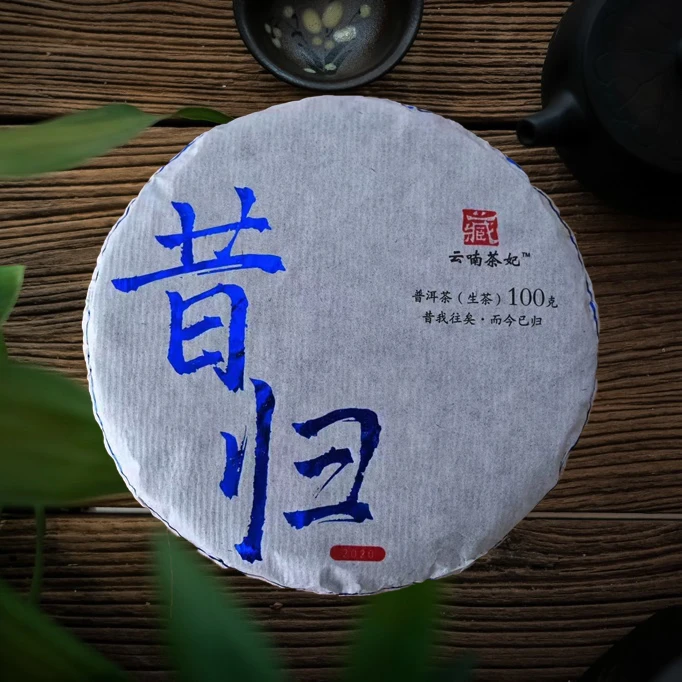 昔归
藏
云喃茶妃™
普洱茶（生茶）100克
昔我往矣·而今已归
2020